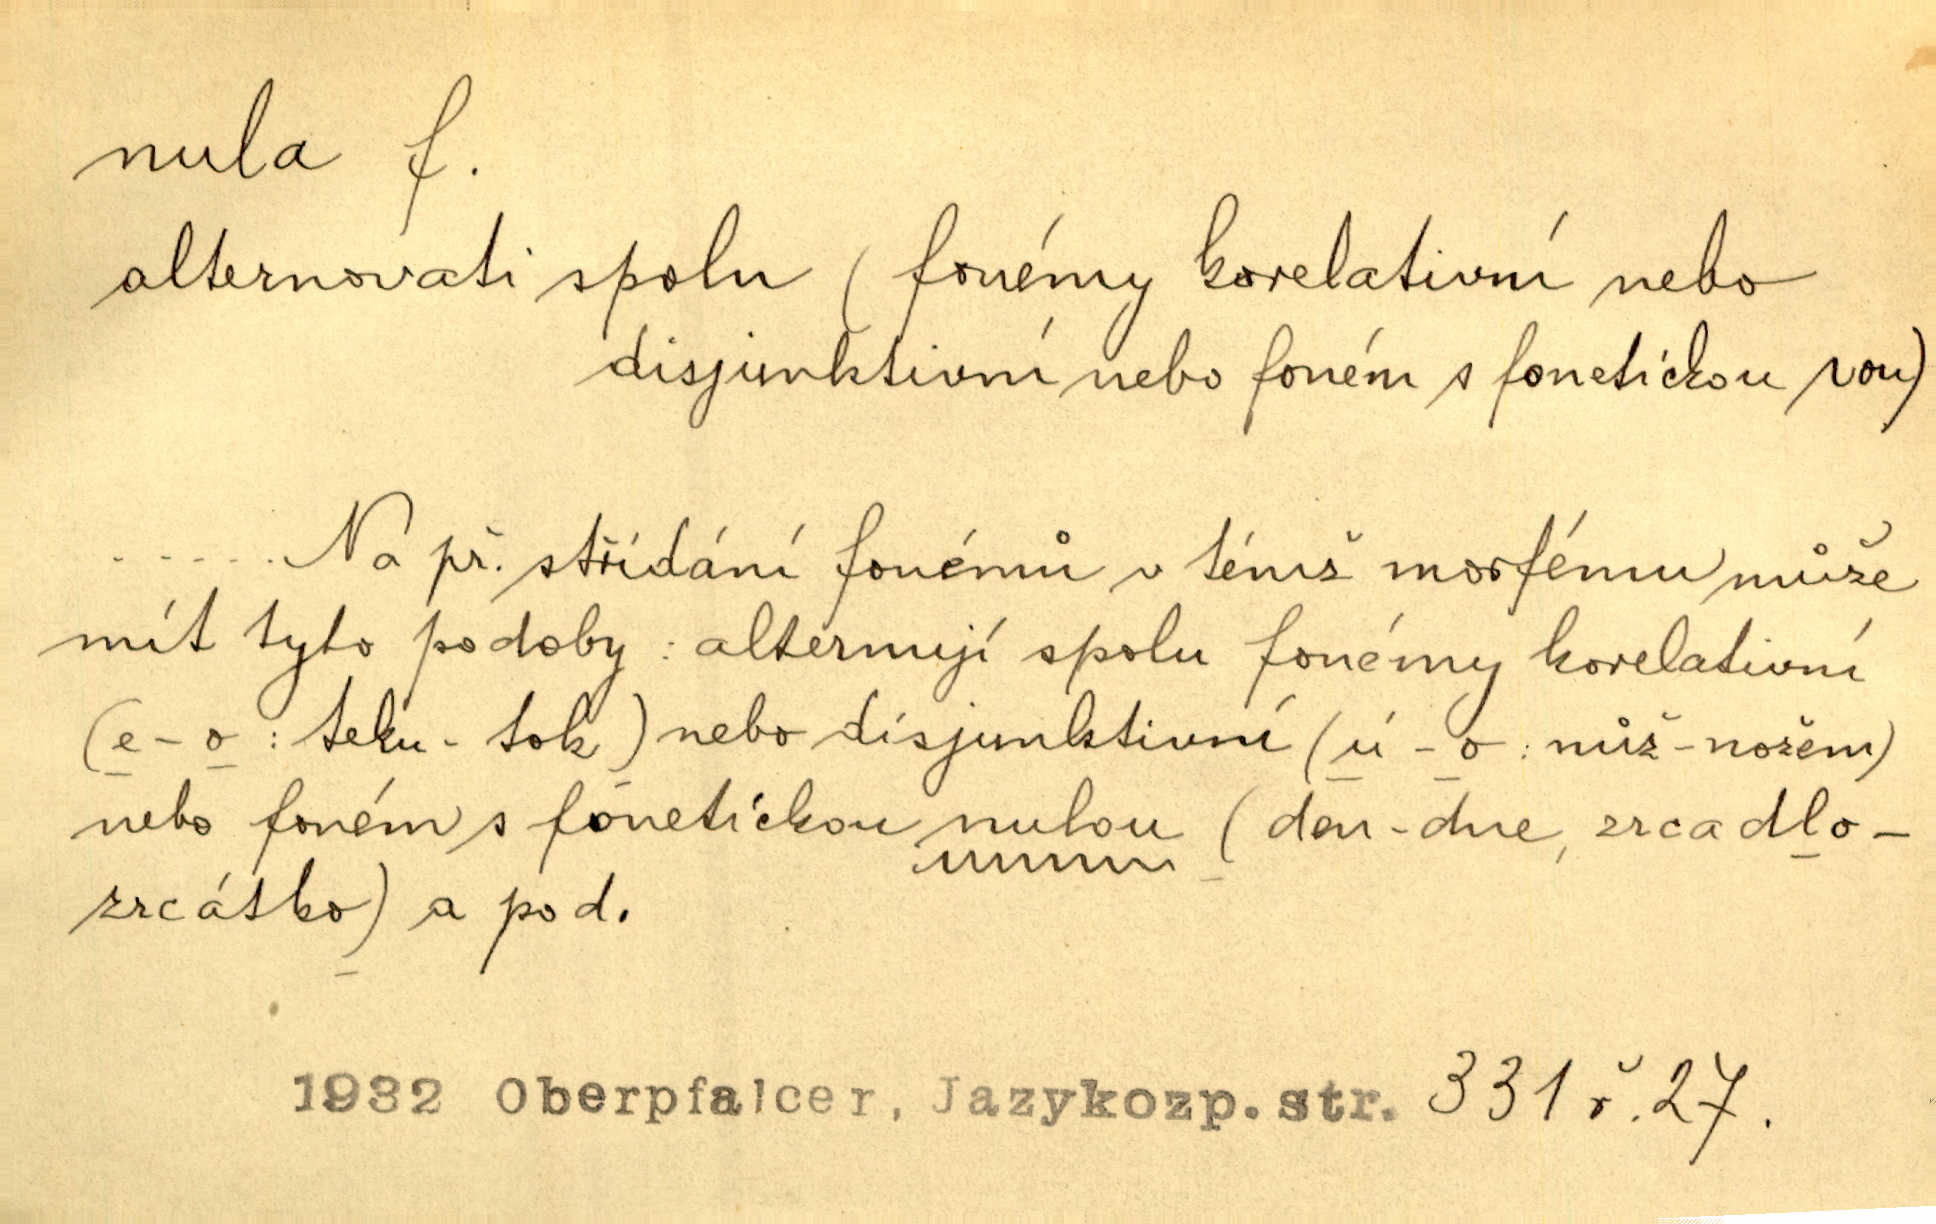 nula f.
alternovati spolu (fonémy korelativní nebo
disjunktivní nebo foném s fonetickou nou)
......Na př. střídání fonémů v témž morfému může
mít tyto podoby: alternují spolu fonémy korelativní
(e-o: teku - tok) nebo disjunktivní (ú-o: nůž-nožem)
nebo foném s fonetickou nulou (den-dne, zrcadlo-
zrcátko) a pod.
1932 Oberpfalcer, Jazykozp. str. 331 ř. 27.